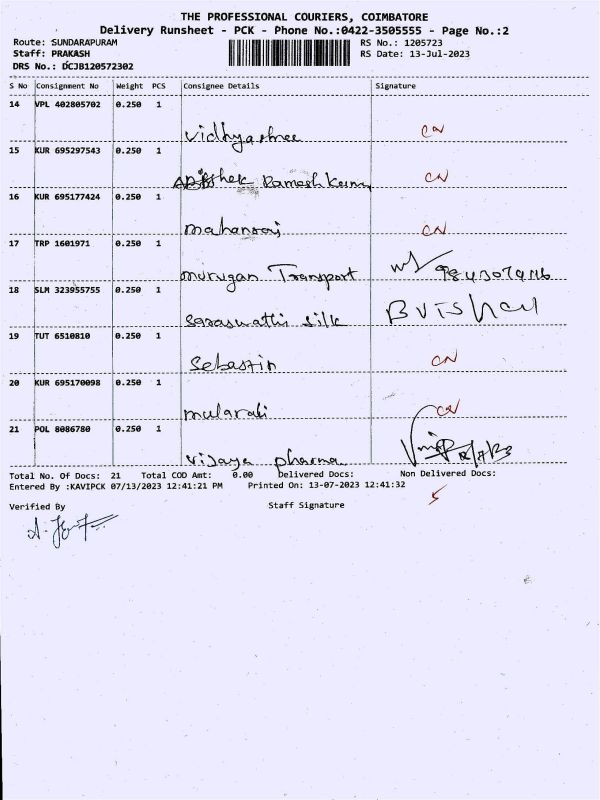 THE PROFESSIONAL COURIERS, COIMBATORE
Delivery Runsheet - PCK - Phone No.:0422-3505555 - Page No.:2
Route: SUNDARAPURAM RS No.: 1205723
Staff: PRAKASH RS Date: 13-Jul-2023
DRS No.: DCJB120572302
S No Consignment No Weight PCS Consignee Details Signature
14 VPL 402805702 0.250 1
Vidhyashree CN
15 KUR 695297543 0.250 1
Abishek Ramesh Kumar CN
16 KUR 695177424 0.250 1
CN
17 TRP 1601971 0.250 1
Murugan Transport
18 SLM 323955755 0.250 1
Saraswathi silk
19 TUT 6510810 0.250 1
Sebastin CN
20 KUR 695170098 0.250 1
mularali CN
21 POL 8086780 0.250 1
Vijaya pharma
Total No. Of Docs: 21 Total COD Amt: 0.00 Delivered Docs: Non Delivered Docs:
Entered By :KAVIPCK 07/13/2023 12:41:21 PM Printed On: 13-07-2023 12:41:32
5
Verified By Staff Signature